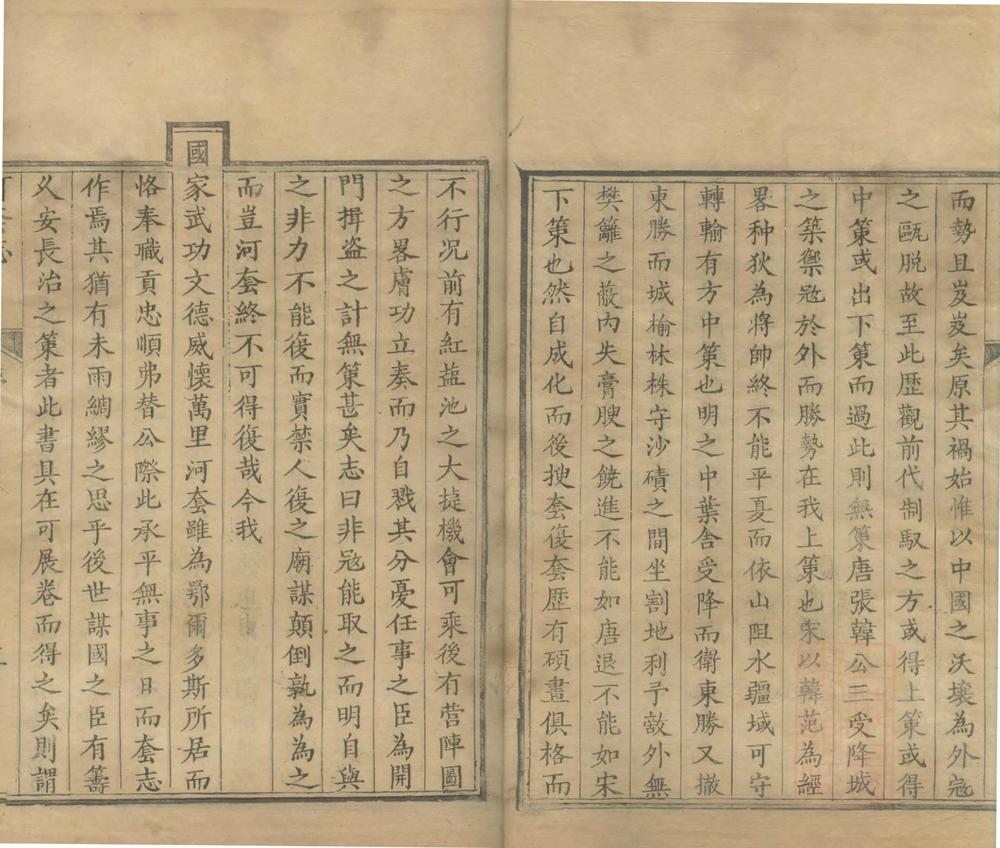 而勢且岌岌矣原其禍始惟以中國之沃壤為外寇
之甌脱故至此歴觀前代制馭之方或得上策或得
中策或出下策而過此則無策唐張韓公三受降城
之築禦寇於外而勝勢在我上策也宋以韓范為經
畧种狄為將帥終不能平夏而依山阻水疆域可守
轉輸有方中策也明之中葉舎受降而衛東勝又撤
東勝而城榆林株守沙磧之間坐割地利予敵外無
樊籬之蔽内失膏腴之饒進不能如唐退不能如宋
下策也然自成化而後搜套復套歴有碩畫俱格而
不行况前有紅盐池之大捷機會可乘後有营陣圖
之方畧膚功立奏而乃自戮其分憂任事之臣為開
門揖盗之計無策甚矣志曰非寇能取之而明自與
之非力不能復而實禁人復之廟謀顛倒孰為為之
而豈河套終不可得復哉今我
國家武功文德威懷萬里河套雖為鄂爾多斯所居而
恪奉職貢忠順弗替公際此承平無事之日而套志
作焉其猶有未雨綢繆之思乎後世謀國之臣有籌
乆安長治之策者此書具在可展卷而得之矣則謂